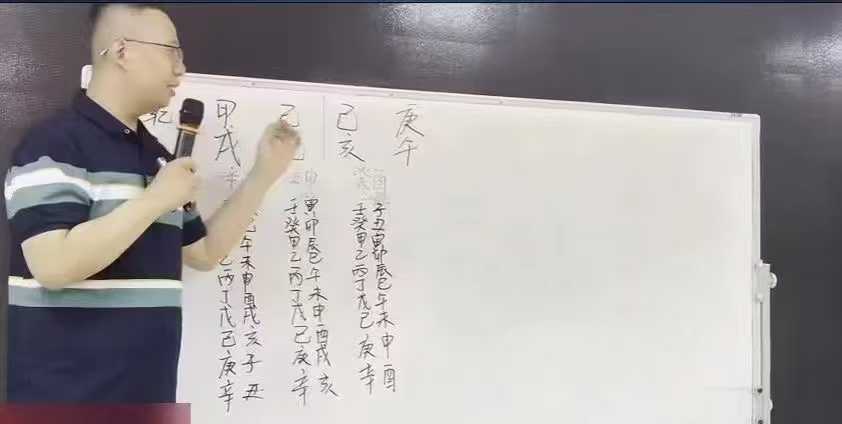 甲 己 己 庚
戌 亥 午
乙丙丁戊己庚辛
午未申酉戌亥子丑
壬癸甲乙丙丁戊己庚辛
寅卯辰巳午未申酉戌亥
壬癸甲乙丙丁戊己庚辛
子丑寅卯辰巳午未申酉